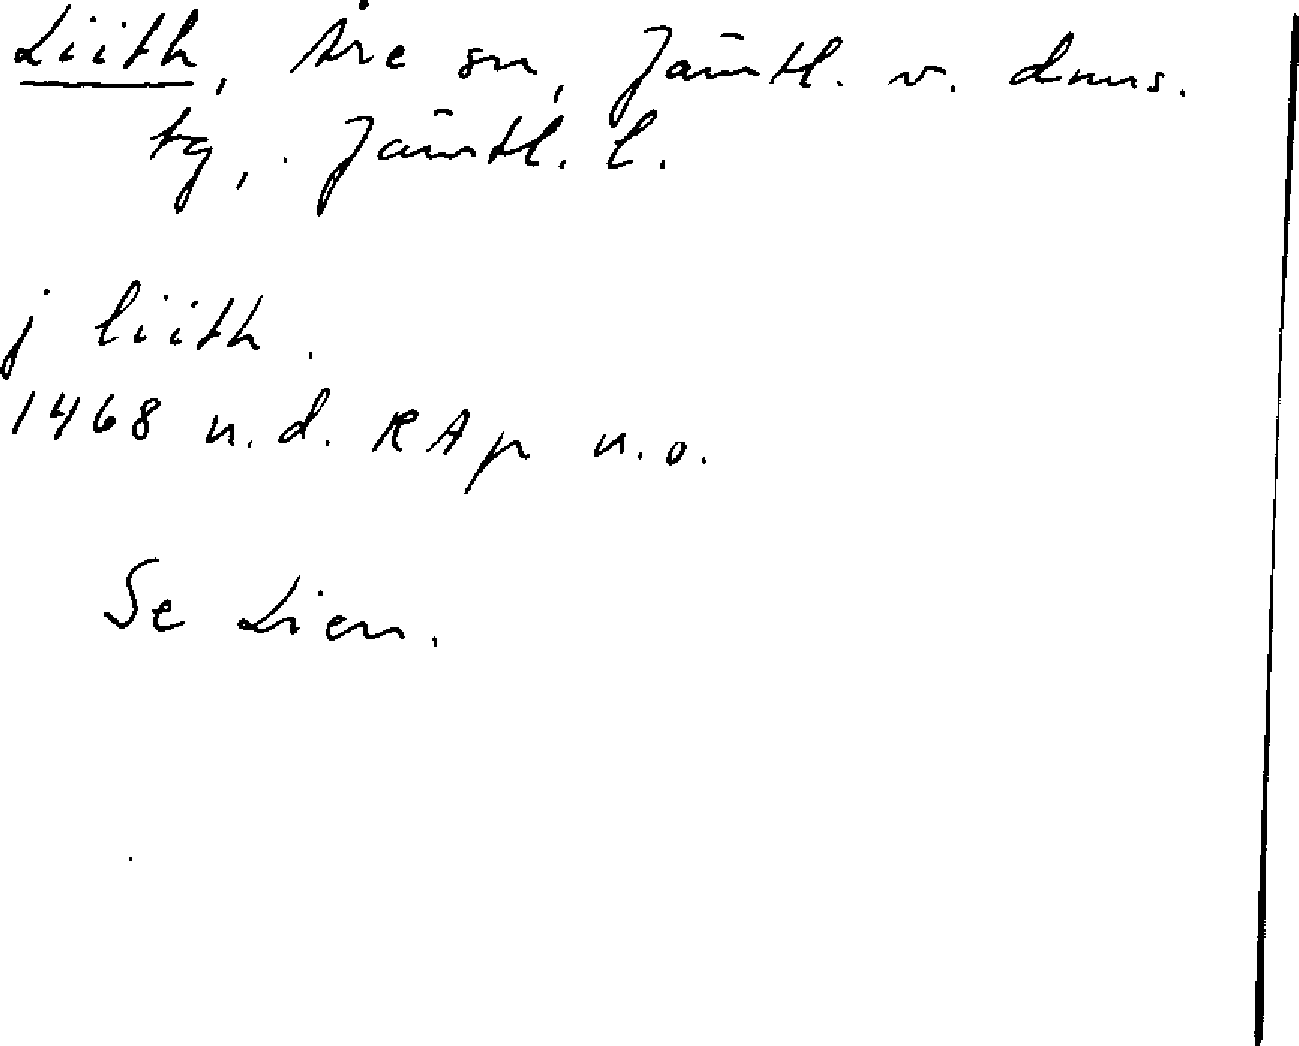 Liith, Åre sn, Jämtl. v. dms.
tg, Jämtl. l.
j liith.
1468 u.d. RAp n.o.
Se Lien.